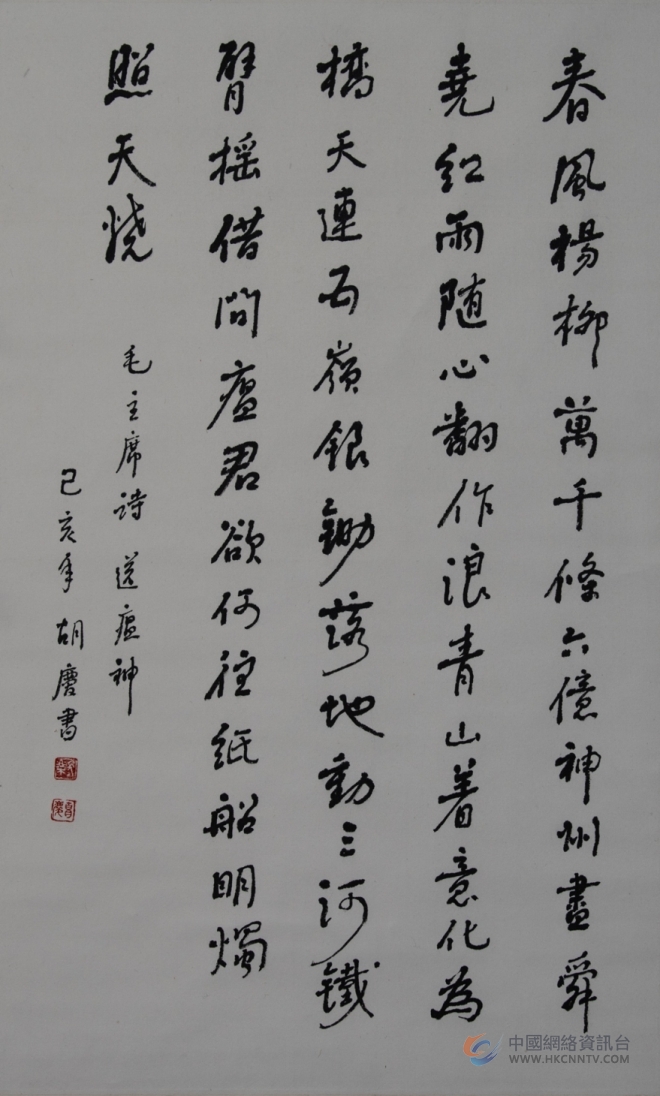 春風楊柳萬千條六億神州盡舜
堯紅雨随心翻作浪青山着意化為
橋天連五嶺銀鋤落地動三河鐵
臂摇借問瘟君欲何往紙船明燭
照天燒
毛主席诗 送瘟神
己亥年 胡書
中國網絡資訊台
WWW.HKCNNTV.COM